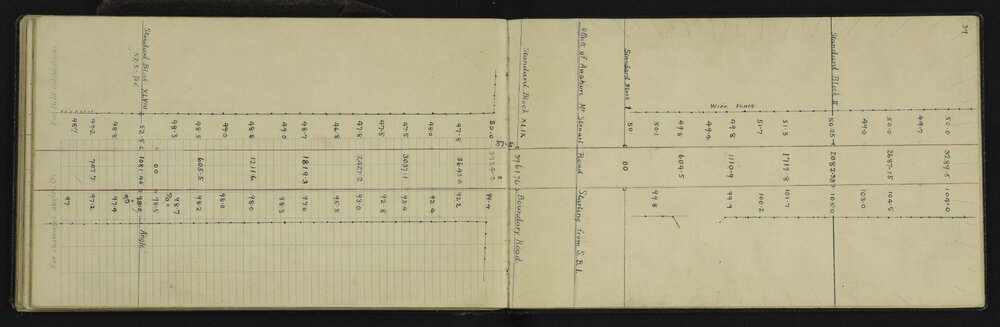 39
50.0 3289.5 104.0
49.7
50.0 2687.15 104.5
49.0 103.0
Standard Block II 50.25 2082.38 105.0
51.3 1719.8 101.7
51.7 100.2
Wire Fence
49.8 1110.9 99.9
49.4
49.8 604.5 99.8
50.1
Standard Block I 50 00
Offsets of Awahuri Mt Stewart Road Starting from S.B.I.
Standard Block XLIX 3961.76 Boundary Road
50.0 3929.5 99.4
47.8 3643.0 92.2
48.0 92.4
47.5 3037.1 93.4
47.5 92.8
47.8 2427.2 93.0
46.8 95.5
48.7 1819.3 97.0
49.0 98.3
48.8 1211.6 98.0
49.0 98.0
48.5 605.5 98.2
48.3 98.7
00 98.5
Standard Block XLVIII 52.5 1081.48 98.0 Angle
48.8 97.4
49.2 707.7 97.2
48.7 97